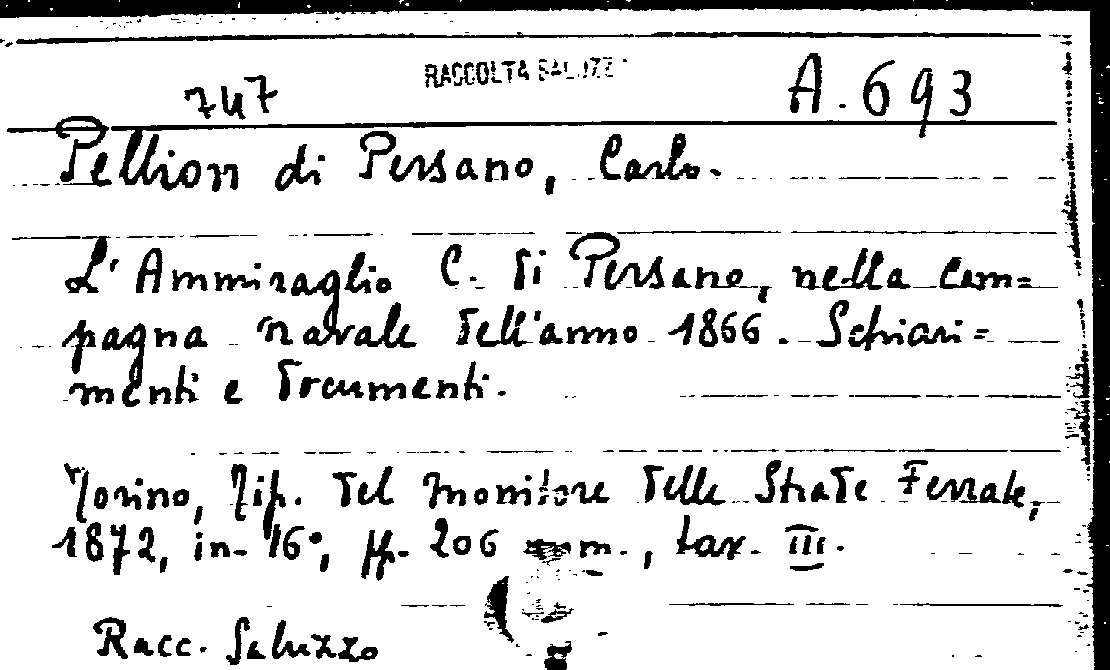 747 RACCOLTA SALUZZO A. 693
Pellion di Persano, Carlo.
L'Ammiraglio C. di Persano, nella cam=
pagna navale dell'anno 1866. Schiari=
menti e documenti.
Torino, Tip. del Monitore delle Strade Ferrate,
1872, in-16°, pp. 206 num., tav. III.
Racc. Saluzzo